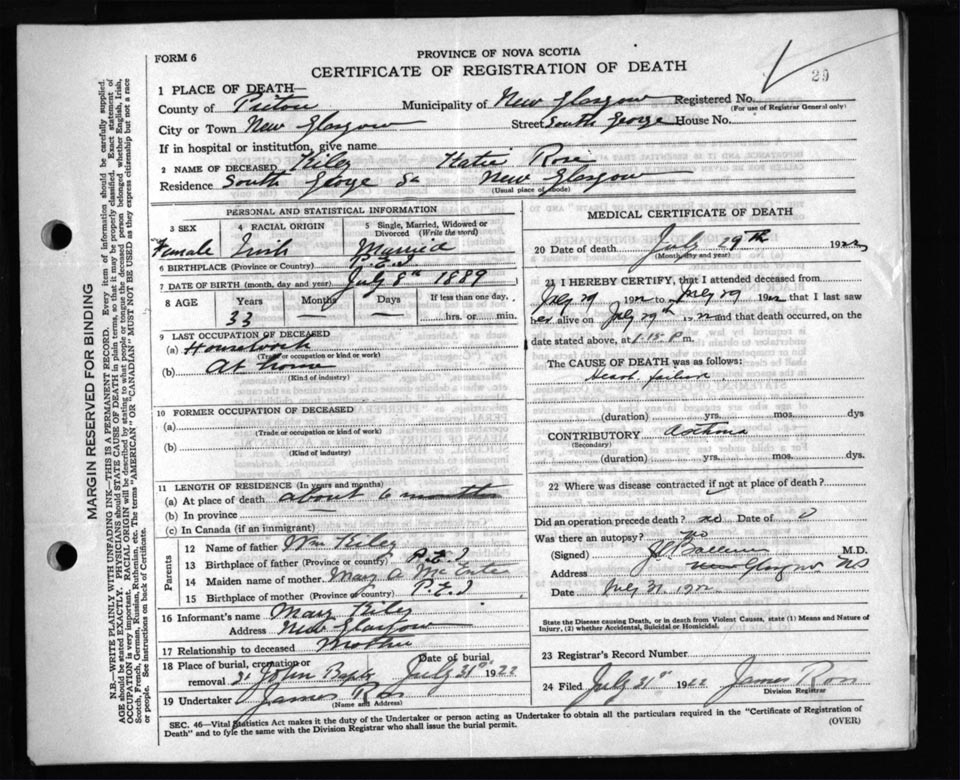 FORM 6
PROVINCE OF NOVA SCOTIA
CERTIFICATE OF REGISTRATION OF DEATH
29
1 PLACE OF DEATH—
County of Pictou Municipality of New Glasgow Registered No.
(For use of Registrar General only)
City or Town New Glasgow Street South George House No.
If in hospital or institution, give name
2 NAME OF DECEASED Riley Katie Rose
Residence South George St New Glasgow
(Usual place of abode)
PERSONAL AND STATISTICAL INFORMATION
3 SEX 4 RACIAL ORIGIN 5 Single, Married, Widowed or Divorced (Write the word)
Female Irish Married
6 BIRTHPLACE (Province or Country) P.E.I
7 DATE OF BIRTH (month, day and year) July 8th 1889
8 AGE Years Months Days If less than one day
33 — — hrs. or min.
9 LAST OCCUPATION OF DECEASED
(a) Housework
(Trade or occupation or kind or work)
(b) At home
(Kind of industry)
10 FORMER OCCUPATION OF DECEASED
(a)
(Trade or occupation or kind of work)
(b)
(Kind of industry)
11 LENGTH OF RESIDENCE (In years and months)
(a) At place of death about 6 months
(b) In province
(c) In Canada (if an immigrant)
Parents
12 Name of father Wm Riley
13 Birthplace of father (Province or country) P.E.I
14 Maiden name of mother Mary A
15 Birthplace of mother (Province or country) P.E.I
16 Informant's name Mary Riley
Address New Glasgow
17 Relationship to deceased Mother
18 Place of burial, cremation or removal St John Bapts Date of burial July 31st 1922
19 Undertaker James Ross
(Name and Address)
MEDICAL CERTIFICATE OF DEATH
20 Date of death July 29th 1922
(Month, day and year)
21 I HEREBY CERTIFY, that I attended deceased from
July 29 1922 to July 29 1922 that I last saw
her alive on July 29th 1922 and that death occurred, on the
date stated above, at 1.15 P m.
The CAUSE OF DEATH was as follows:
Heart failure
(duration) yrs. mos. dys
CONTRIBUTORY Asthma
(Secondary)
(duration) yrs. mos. dys
22 Where was disease contracted if not at place of death?
Did an operation precede death? no Date of 0
Was there an autopsy? no
(Signed) M.D.
Address New Glasgow NS
Date July 31 1922
State the Disease causing Death, or in death from Violent Causes, state (1) Means and Nature of Injury, (2) whether Accidental, Suicidal or Homicidal.
23 Registrar's Record Number
24 Filed July 31st 1922 James Ross
Division Registrar
SEC. 46—Vital Statistics Act makes it the duty of the Undertaker or person acting as Undertaker to obtain all the particulars required in the "Certificate of Registration of
Death" and to fyle the same with the Division Registrar who shall issue the burial permit. (OVER)
MARGIN RESERVED FOR BINDING
N.B.—WRITE PLAINLY WITH UNFADING INK—THIS IS A PERMANENT RECORD. Every item of information should be carefully supplied.
AGE should be stated EXACTLY. PHYSICIANS should STATE CAUSE OF DEATH in plain terms, so that it may be properly classified. Exact statement of
OCCUPATION is very important. RACIAL ORIGIN will be described by stating to what people or tongue the deceased person belonged whether English, Irish,
Scotch, French, German, Russian, Ruthenian, etc. The terms "AMERICAN" OR "CANADIAN" MUST NOT BE USED as they express citizenship but not a race
or people. See instructions on back of Certificate.